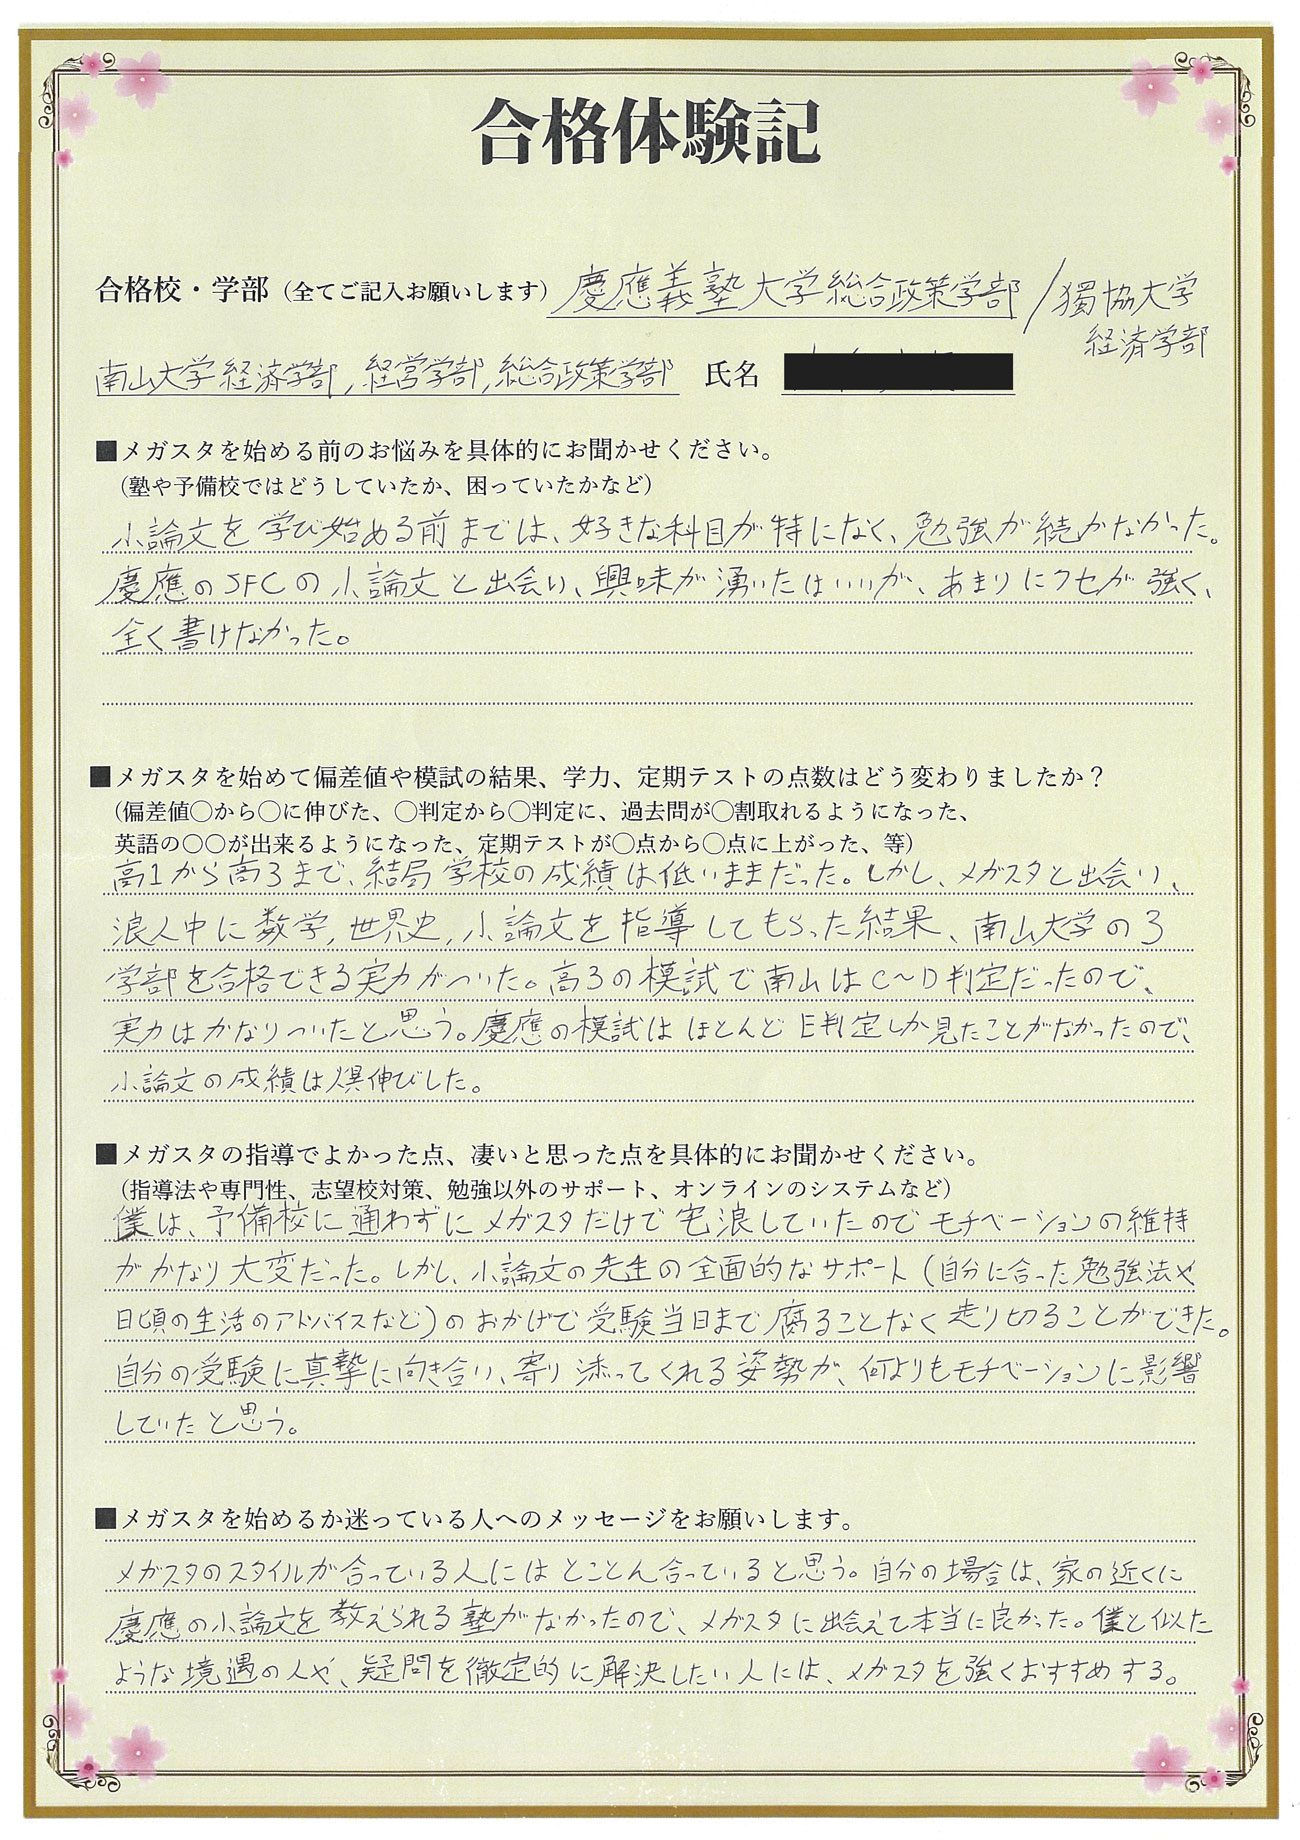 合格体験記
合格校・学部（全てご記入お願いします）慶應義塾大学総合政策学部/獨協大学
経済学部
南山大学経済学部,経営学部,総合政策学部 氏名
■メガスタを始める前のお悩みを具体的にお聞かせください。
（塾や予備校ではどうしていたか、困っていたかなど）
小論文を学び始める前までは、好きな科目が特になく、勉強が続かなかった。
慶應のSFCの小論文と出会い、興味が湧いたはいいが、あまりにクセが強く、
全く書けなかった。
■メガスタを始めて偏差値や模試の結果、学力、定期テストの点数はどう変わりましたか？
（偏差値〇から〇に伸びた、〇判定から〇判定に、過去問が〇割取れるようになった、
英語の〇〇が出来るようになった、定期テストが〇点から〇点に上がった、等）
高1から高3まで、結局学校の成績は低いままだった。しかし、メガスタと出会い、
浪人中に数学,世界史,小論文を指導してもらった結果、南山大学の3
学部を合格できる実力がついた。高3の模試で南山はC〜D判定だったので、
実力はかなりついたと思う。慶應の模試はほとんどE判定しか見たことがなかったので、
小論文の成績は爆伸びした。
■メガスタの指導でよかった点、凄いと思った点を具体的にお聞かせください。
（指導法や専門性、志望校対策、勉強以外のサポート、オンラインのシステムなど）
僕は、予備校に通わずにメガスタだけで宅浪していたのでモチベーションの維持
がかなり大変だった。しかし、小論文の先生の全面的なサポート（自分に合った勉強法や
日頃の生活のアドバイスなど）のおかげで受験当日まで腐ることなく走り切ることができた。
自分の受験に真摯に向き合い、寄り添ってくれる姿勢が、何よりもモチベーションに影響
していたと思う。
■メガスタを始めるか迷っている人へのメッセージをお願いします。
メガスタのスタイルが合っている人にはとことん合っていると思う。自分の場合は、家の近くに
慶應の小論文を教えられる塾がなかったので、メガスタに出会えて本当に良かった。僕と似た
ような境遇の人や、疑問を徹定的に解決したい人には、メガスタを強くおすすめする。